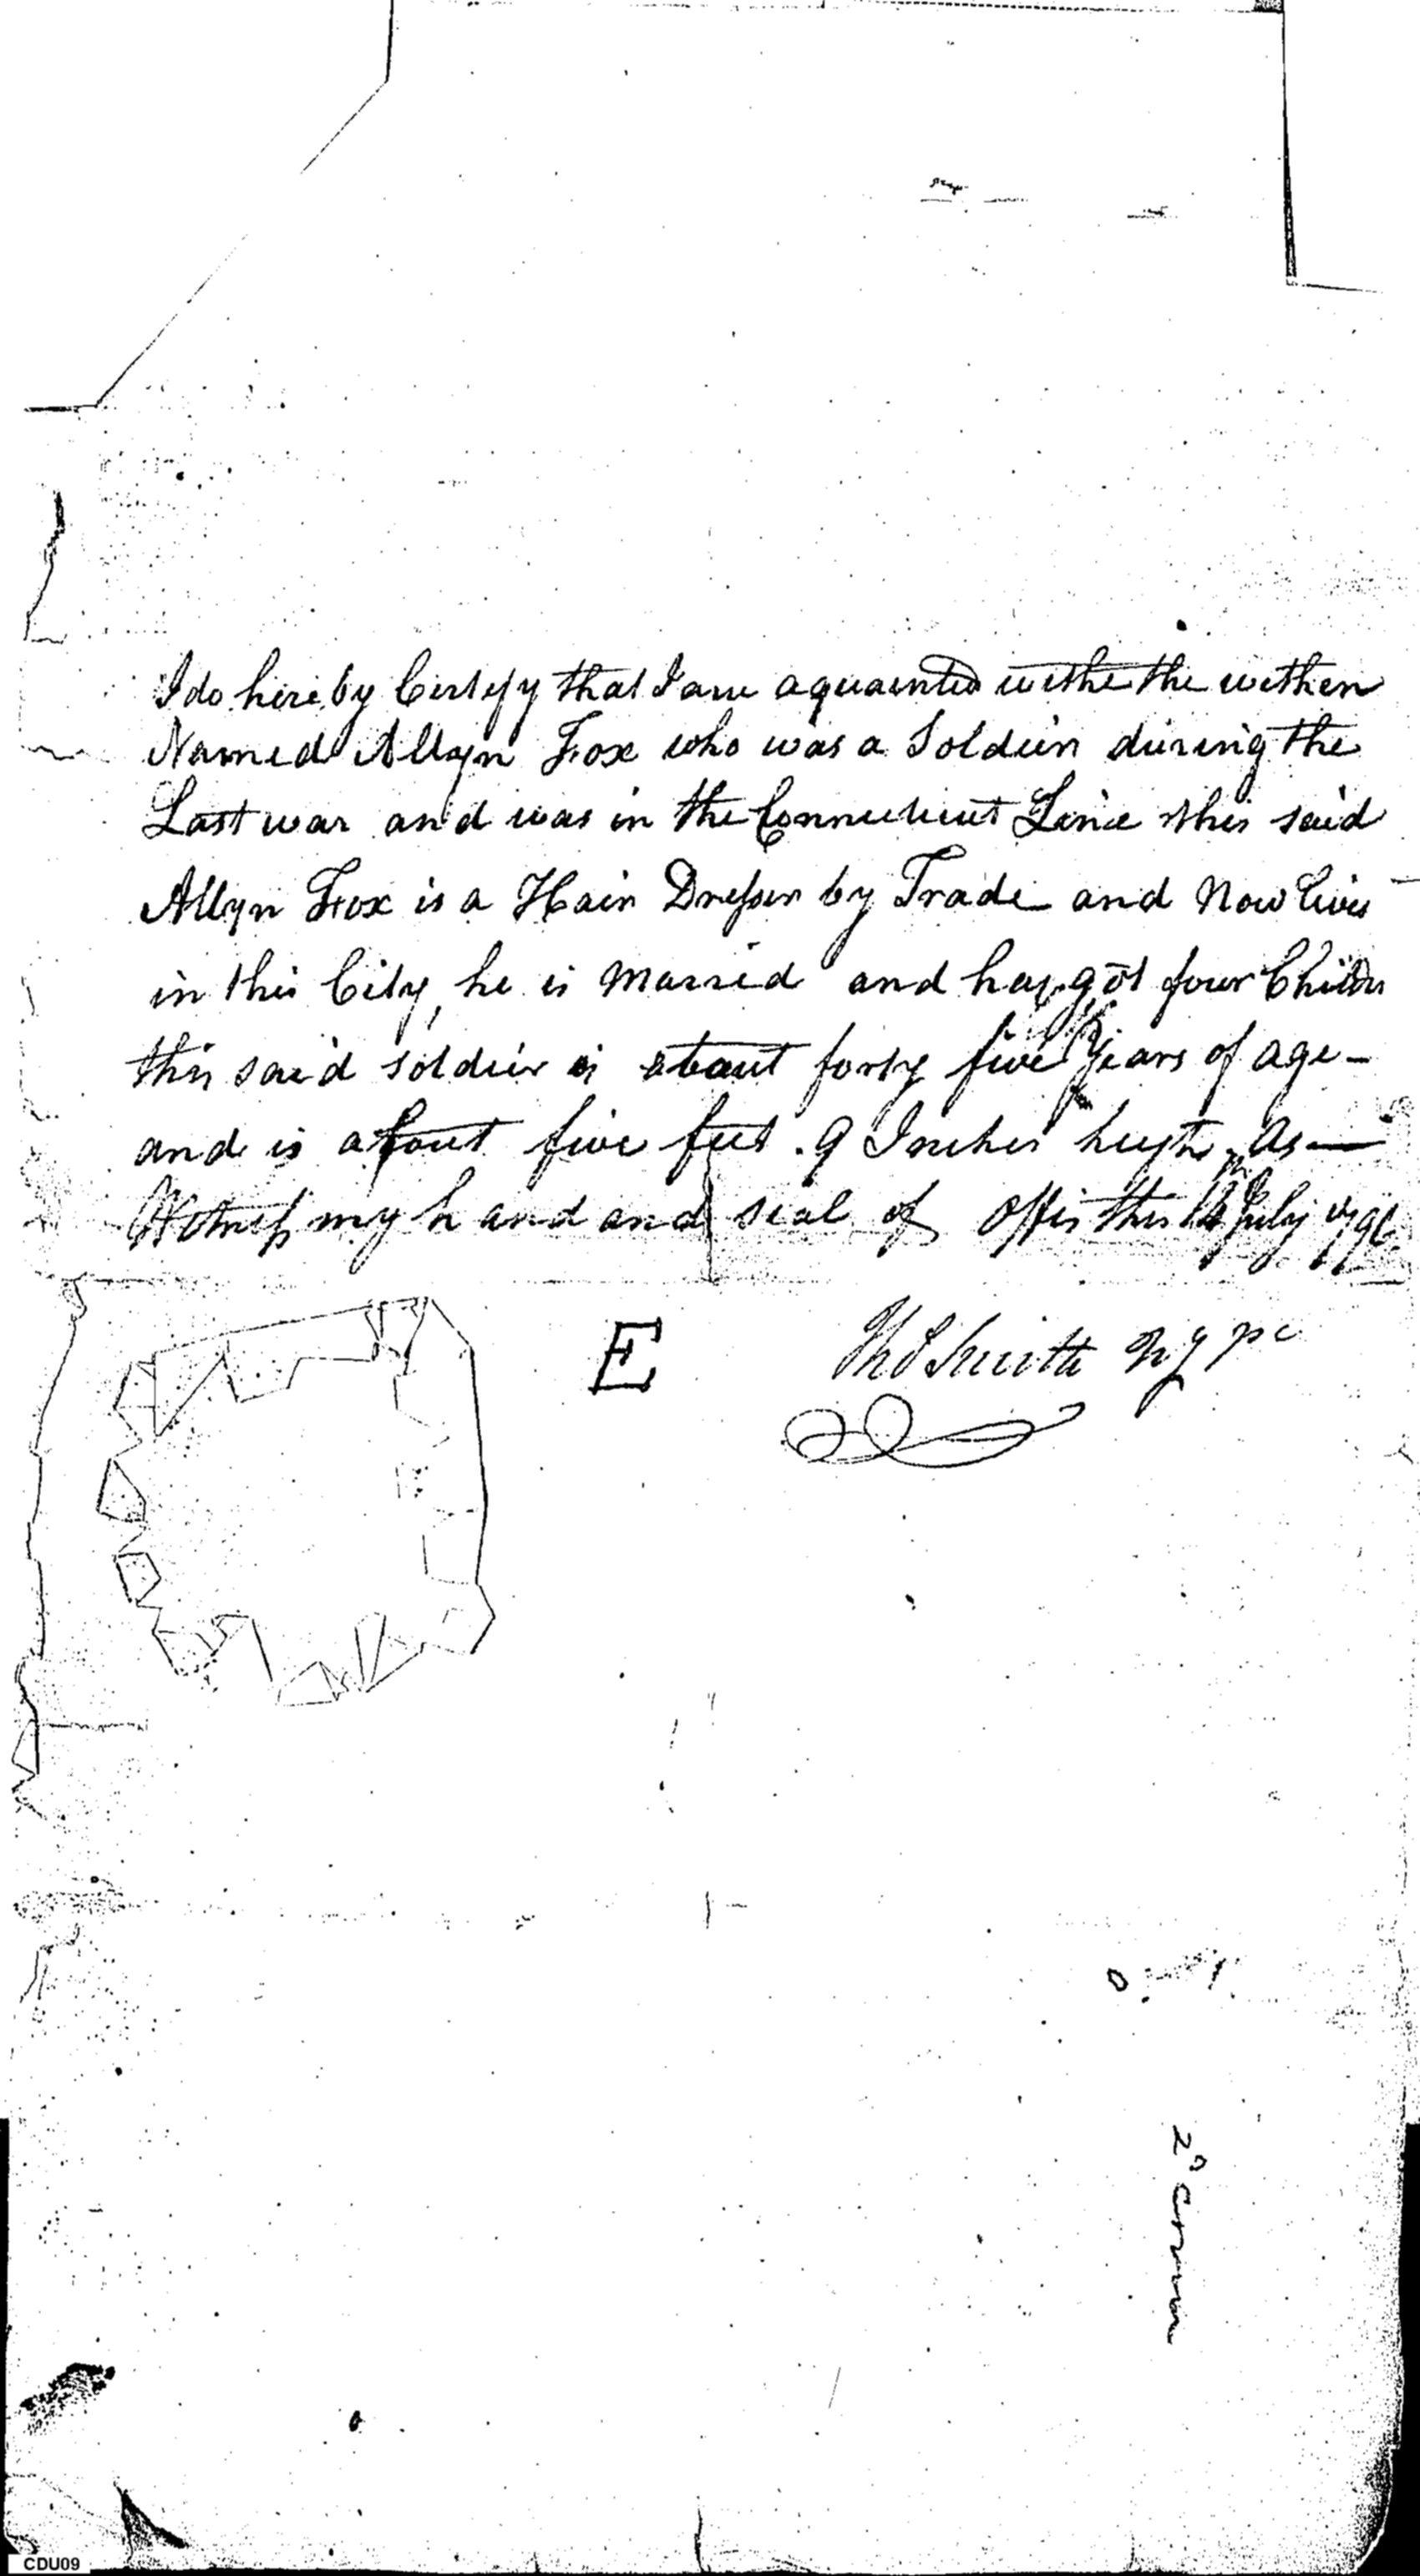 I do hereby Certefy that I am aquainted withe the within
Named Allyn Fox who was a Soldier during the
Last war and was in the Connecticut Line this said
Allyn Fox is a Hair Dresser by Trade and Now lives
in this City, he is Married and has got four
this said soldier is about forty five years of age -
and is about five feet . 9 Inches high as —
Witness my hand and seal of Offis this July
E
CDU09